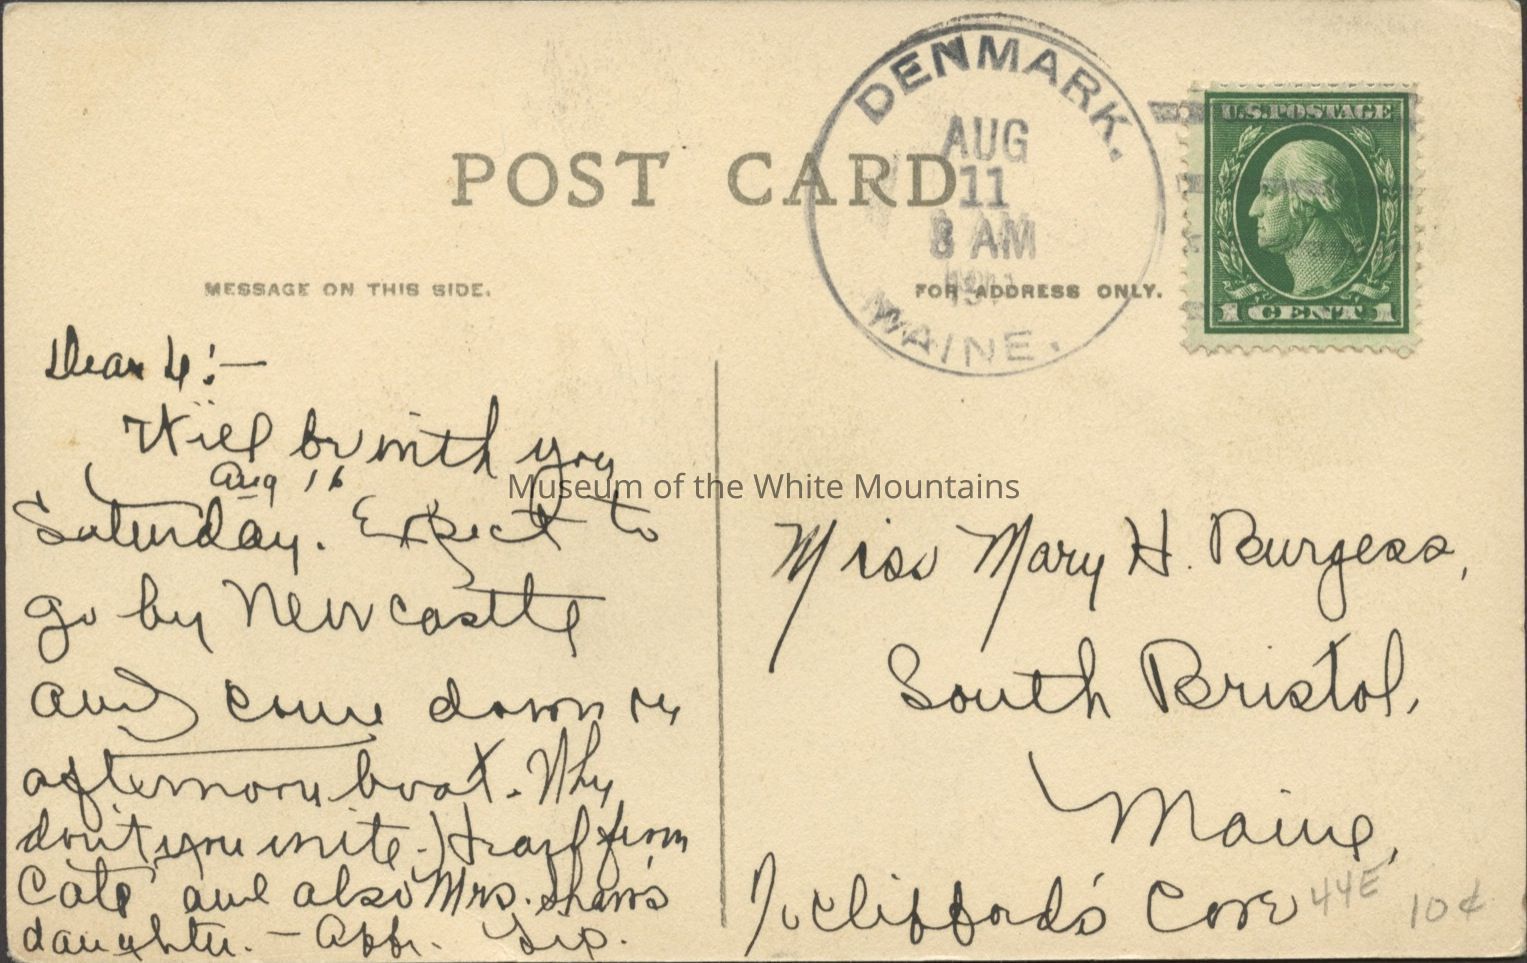 POST CARD
DENMARK.
AUG
11
8 AM
191
MAINE.
U.S. POSTAGE
1 CENT 1
MESSAGE ON THIS SIDE.
FOR ADDRESS ONLY.
Dear :—
Will be with you
Aug 16
Saturday. Expect to
go by Newcastle
and come down on
afternoon boat. Why
don't you write. Heard from
Cate and also Mrs. Shaw's
daughter. —
Museum of the White Mountains
Miss Mary H. Burgess,
South Bristol,
Maine,
℅ Clifford's Cove
44E 10¢